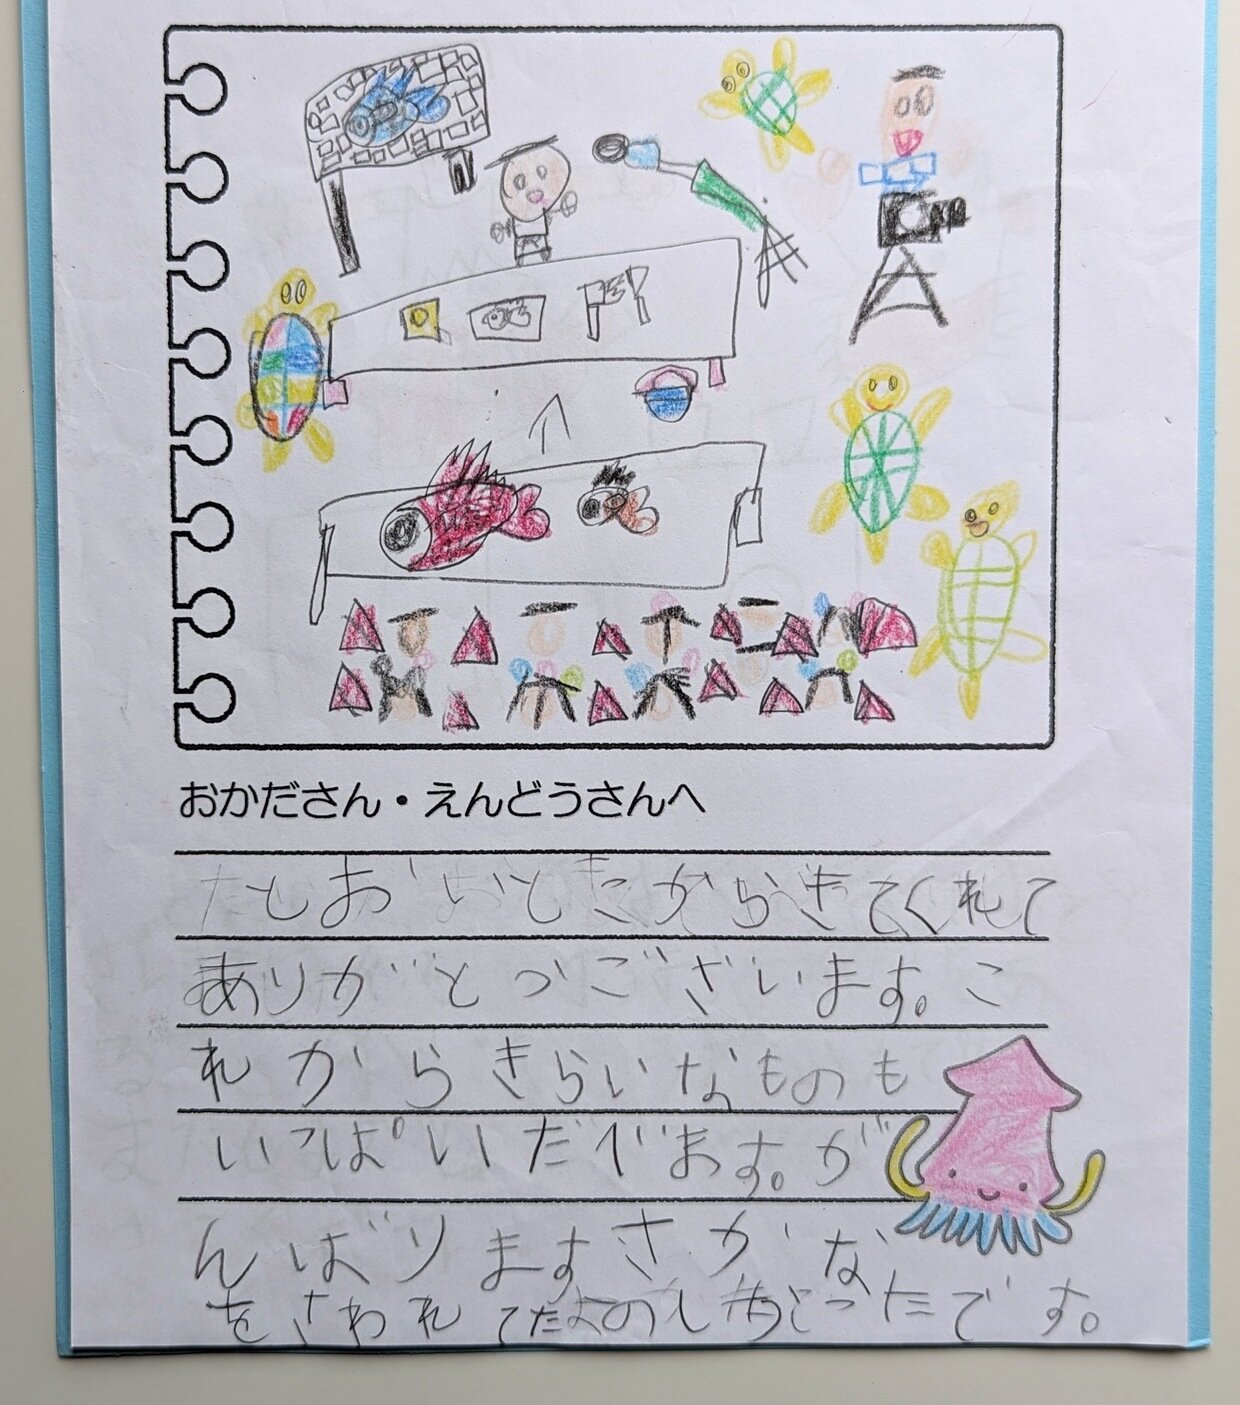 おかださん・えんどうさんへ
とおいとこからきてくれて
ありがとうございます。こ
れからきらいなものも
いっぱいたべます。が
んばりますさかな
をさわれてたのしかったです。